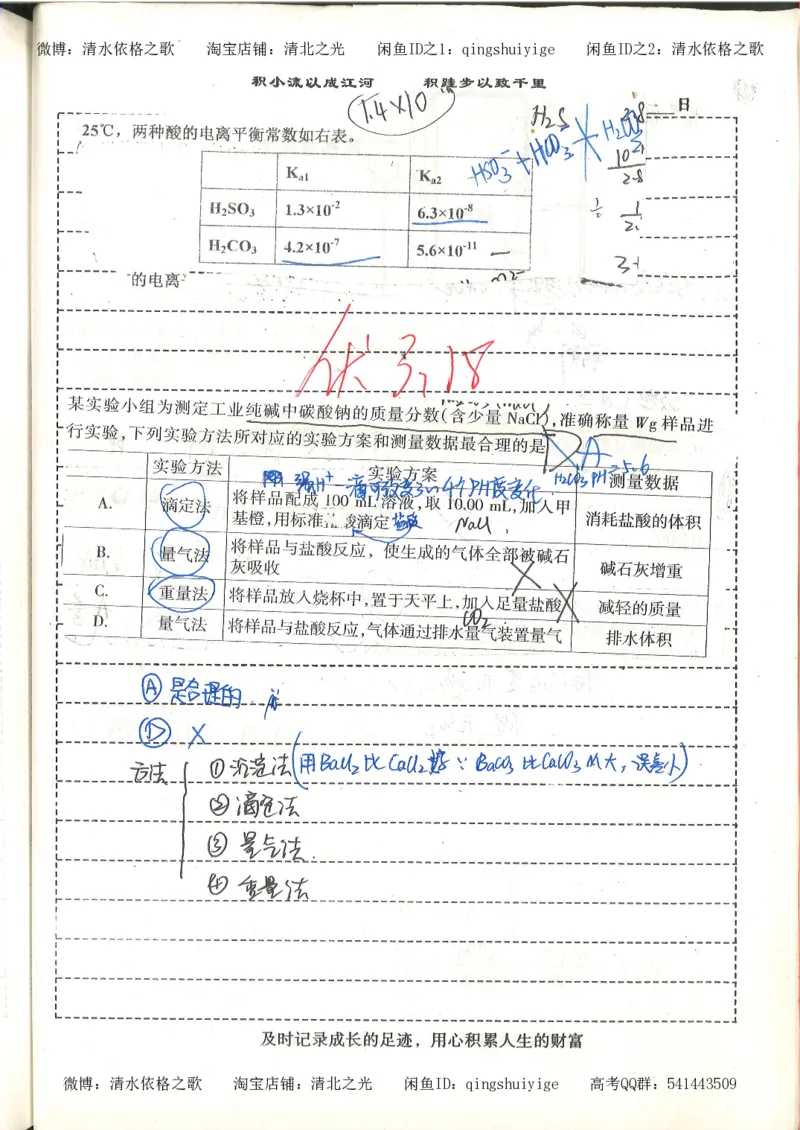 微博：清水依格之歌 淘宝店铺：清北之光 闲鱼ID之1：qingshuiyige 闲鱼ID之2：清水依格之歌
积小流以成江河 积跬步以致千里
日
1.4×10
25℃，两种酸的电离平衡常数如右表。
H₂S
HSO₃⁻ + HCO₃⁻ H₂CO₃
Ka1 Ka2
H₂SO₃ 1.3×10⁻² 6.3×10⁻⁸
H₂CO₃ 4.2×10⁻⁷ 5.6×10⁻¹¹
的电离
某实验小组为测定工业纯碱中碳酸钠的质量分数(含少量 NaCl),准确称量 Wg 样品进
行实验,下列实验方法所对应的实验方案和测量数据最合理的是
A
H₂CO₃ PH=5.6
实验方法 实验方案 测量数据
A. 滴定法 将样品配成 100 mL 溶液,取 10.00 mL,加入甲
基橙,用标准 酸滴定 消耗盐酸的体积
盐酸 NaCl
B. 量气法 将样品与盐酸反应，使生成的气体全部被碱石
灰吸收 碱石灰增重
C. 重量法 将样品放入烧杯中,置于天平上,加入足量盐酸 减轻的质量
CO₂
D. 量气法 将样品与盐酸反应,气体通过排水量气装置量气 排水体积
Ⓐ 是合理的
Ⓓ ×
方法 ①沉淀法(用BaCl₂比CaCl₂好 ∵ BaCO₃比CaCO₃ M大，误差小)
②滴定法
③量气法
④重量法
及时记录成长的足迹，用心积累人生的财富
微博：清水依格之歌 淘宝店铺：清北之光 闲鱼ID：qingshuiyige 高考QQ群：541443509